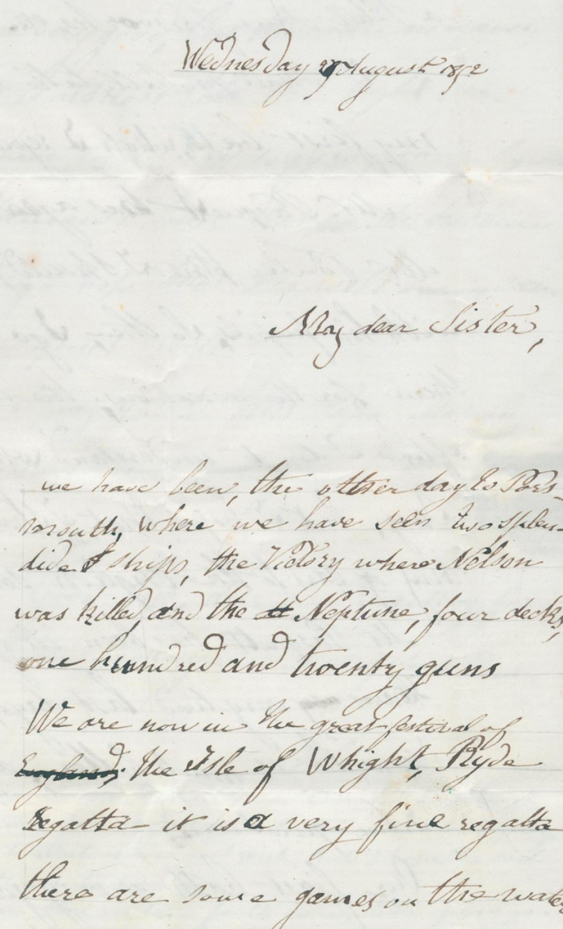 Wednesday August 1852
My dear Sister,
we have been, the other day to Pors-
mouth, where we have seen two splen-
dide ships, the Victory where Nelson
was killed, and the Neptune, four decks,
one hundred and twenty guns
We are now in the great festival of
England, the Isle of Whight, Ryde
regatta it is a very fine regatta
there are some games on the water